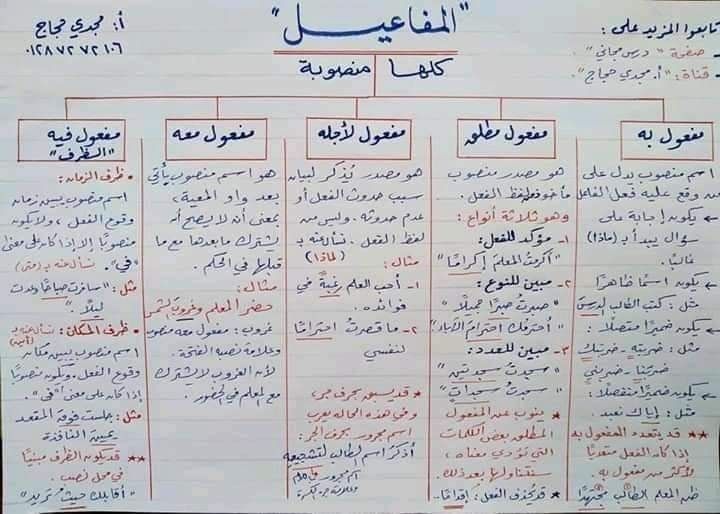 "المفاعيل"
كلها منصوبة
أ: مجدي حجاج
٠١٢٨٧٢٧٢١٠٦
تابعوا المزيد على:
- صفحة "درس مجاني".
- قناة: "أ. مجدي حجاج".
مفعول به
اسم منصوب يدل على
من وقع عليه فعل الفاعل
يكون إجابة على
سؤال يبدأ بـ (ماذا)
غالبًا.
يكون اسمًا ظاهرًا
مثل: كتب الطالب الدرسَ
يكون ضميرًا متصلًا:
مثل: ضربته - ضربتك
ضربنا - ضربني
يكون ضميرًا منفصلًا:
مثل: إياك نعبد.
** قد يتعدد المفعول به
إذا كان الفعل متعديًا
لأكثر من مفعول به.
ظن المعلم الطالبَ مجتهدًا
مفعول مطلق
هو مصدر منصوب
مأخوذ من لفظ الفعل.
وهو ثلاثة أنواع:
١- مؤكد للفعل:
"أكرمتُ المعلمَ إكرامًا"
٢- مبين للنوع:
"صبرتُ صبرًا جميلًا"
"أحترمك احترامَ الأبناء"
٣- مبين للعدد:
"سجدتُ سجدتين"
"سجدتُ سجداتٍ"
* ينوب عن المفعول
المطلق بعض الكلمات
التي تؤدي معناه،
سنتناولها بعد ذلك.
* قد يُحذف الفعل: إقدامًا.
مفعول لأجله
هو مصدر يُذكر لبيان
سبب حدوث الفعل أو
عدم حدوثه. وليس من
لفظ الفعل. نسأل عنه بـ
(لماذا)
مثال:
١- أحب العلم رغبةً في
فوائده.
٢- ما قصرتُ احترامًا
لنفسي
* قد يسبق بحرف جر
وفي هذه الحالة يعرب
اسم مجرور بحرف الجر:
أذكر اسم الطالب لتشجيعه
اسم مجرور باللام
وعلامة جره الكسرة
مفعول معه
هو اسم منصوب يأتي
بعد واو المعية،
بمعنى أن لا يصح أن
يشترك ما بعدها مع ما
قبلها في الحكم.
مثال:
حضر المعلم وغروبَ الشمس
غروب: مفعول معه منصوب
وعلامة نصبه الفتحة.
لأن الغروب لا يشترك
مع المعلم في الحضور.
مفعول فيه
"الظرف"
* ظرف الزمان:
اسم منصوب يبين زمان
وقوع الفعل، ولا يكون
منصوبًا إلا إذا كان على معنى
"في". نسأل عنه بـ (متى)
مثل: "سافرت صباحًا وعدت
ليلًا".
* ظرف المكان: نسأل عنه بـ (أين)
اسم منصوب يبين مكان
وقوع الفعل. ويكون منصوبًا
إذا كان على معنى "في".
مثل: جلست فوقَ المقعد
يمينَ النافذة
** قد يكون الظرف مبنيًا
في محل نصب.
"أقابلك حيثُ تريد"